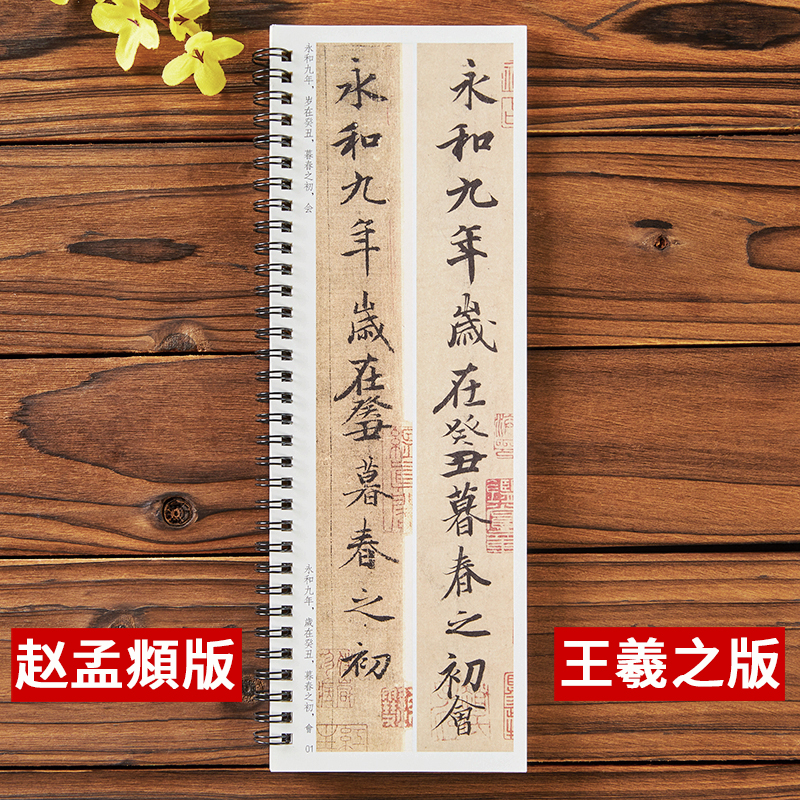 永和九年，岁在癸丑，暮春之初，会
永和九年歲在癸丑暮春之初會
永和九年歲在癸丑暮春之初
永和九年，歲在癸丑，暮春之初，會
01
赵孟頫版
王羲之版